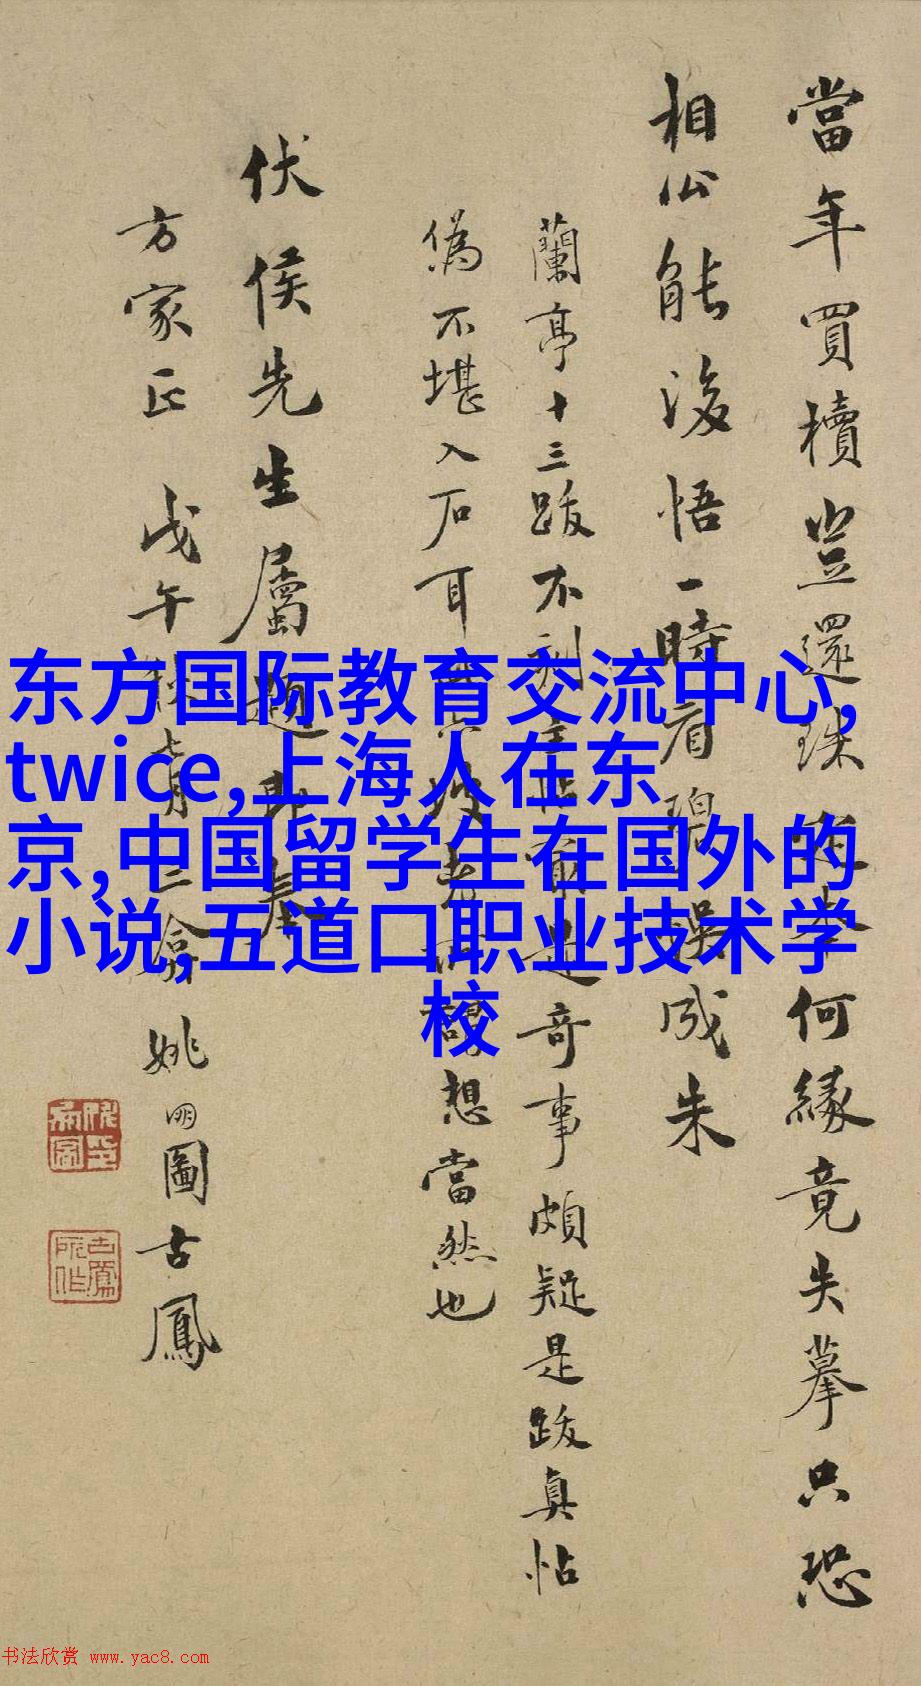 當年買櫝豈還珠本何緣竟失摹只恐
相公能後悟一時看碧誤成朱
蘭亭十三跋不刻是奇事頗疑是跋真帖
偽不堪入石耳坡老所謂想當然也
伏侯先生屬題即奉
方家正 戊午秋七月 姚明圖古鳳
东方国际教育交流中心,
twice,上海人在东
京,中国留学生在国外的
小说,五道口职业技术学
校
书法欣赏 www.yac8.com